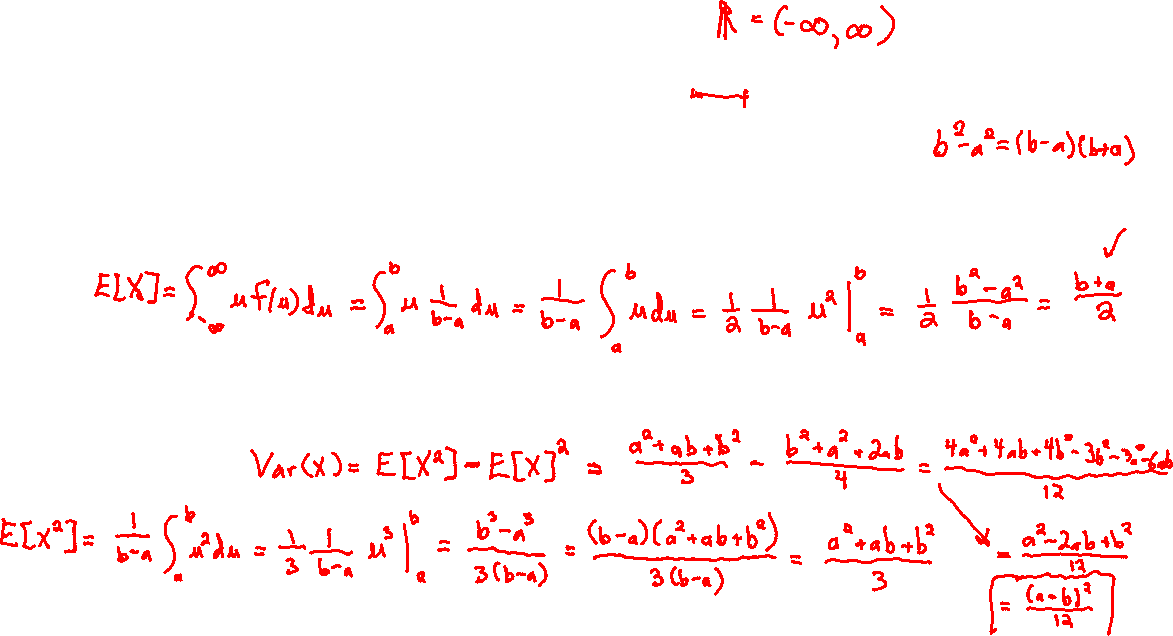 ℝ = (-∞, ∞)
b² - a² = (b-a)(b+a)
E[X] = ∫_{-∞}^{∞} u f(u) du = ∫_a^b u \frac{1}{b-a} du = \frac{1}{b-a} ∫_a^b u du = \frac{1}{2} \frac{1}{b-a} u² |_a^b = \frac{1}{2} \frac{b² - a²}{b-a} = \frac{b+a}{2} ✓
Var(X) = E[X²] - E[X]² = \frac{a² + ab + b²}{3} - \frac{b² + a² + 2ab}{4} = \frac{4a² + 4ab + 4b² - 3b² - 3a² - 6ab}{12}
E[X²] = \frac{1}{b-a} ∫_a^b u² du = \frac{1}{3} \frac{1}{b-a} u³ |_a^b = \frac{b³ - a³}{3(b-a)} = \frac{(b-a)(a² + ab + b²)}{3(b-a)} = \frac{a² + ab + b²}{3}
= \frac{a² - 2ab + b²}{12}
= \frac{(a-b)²}{12}